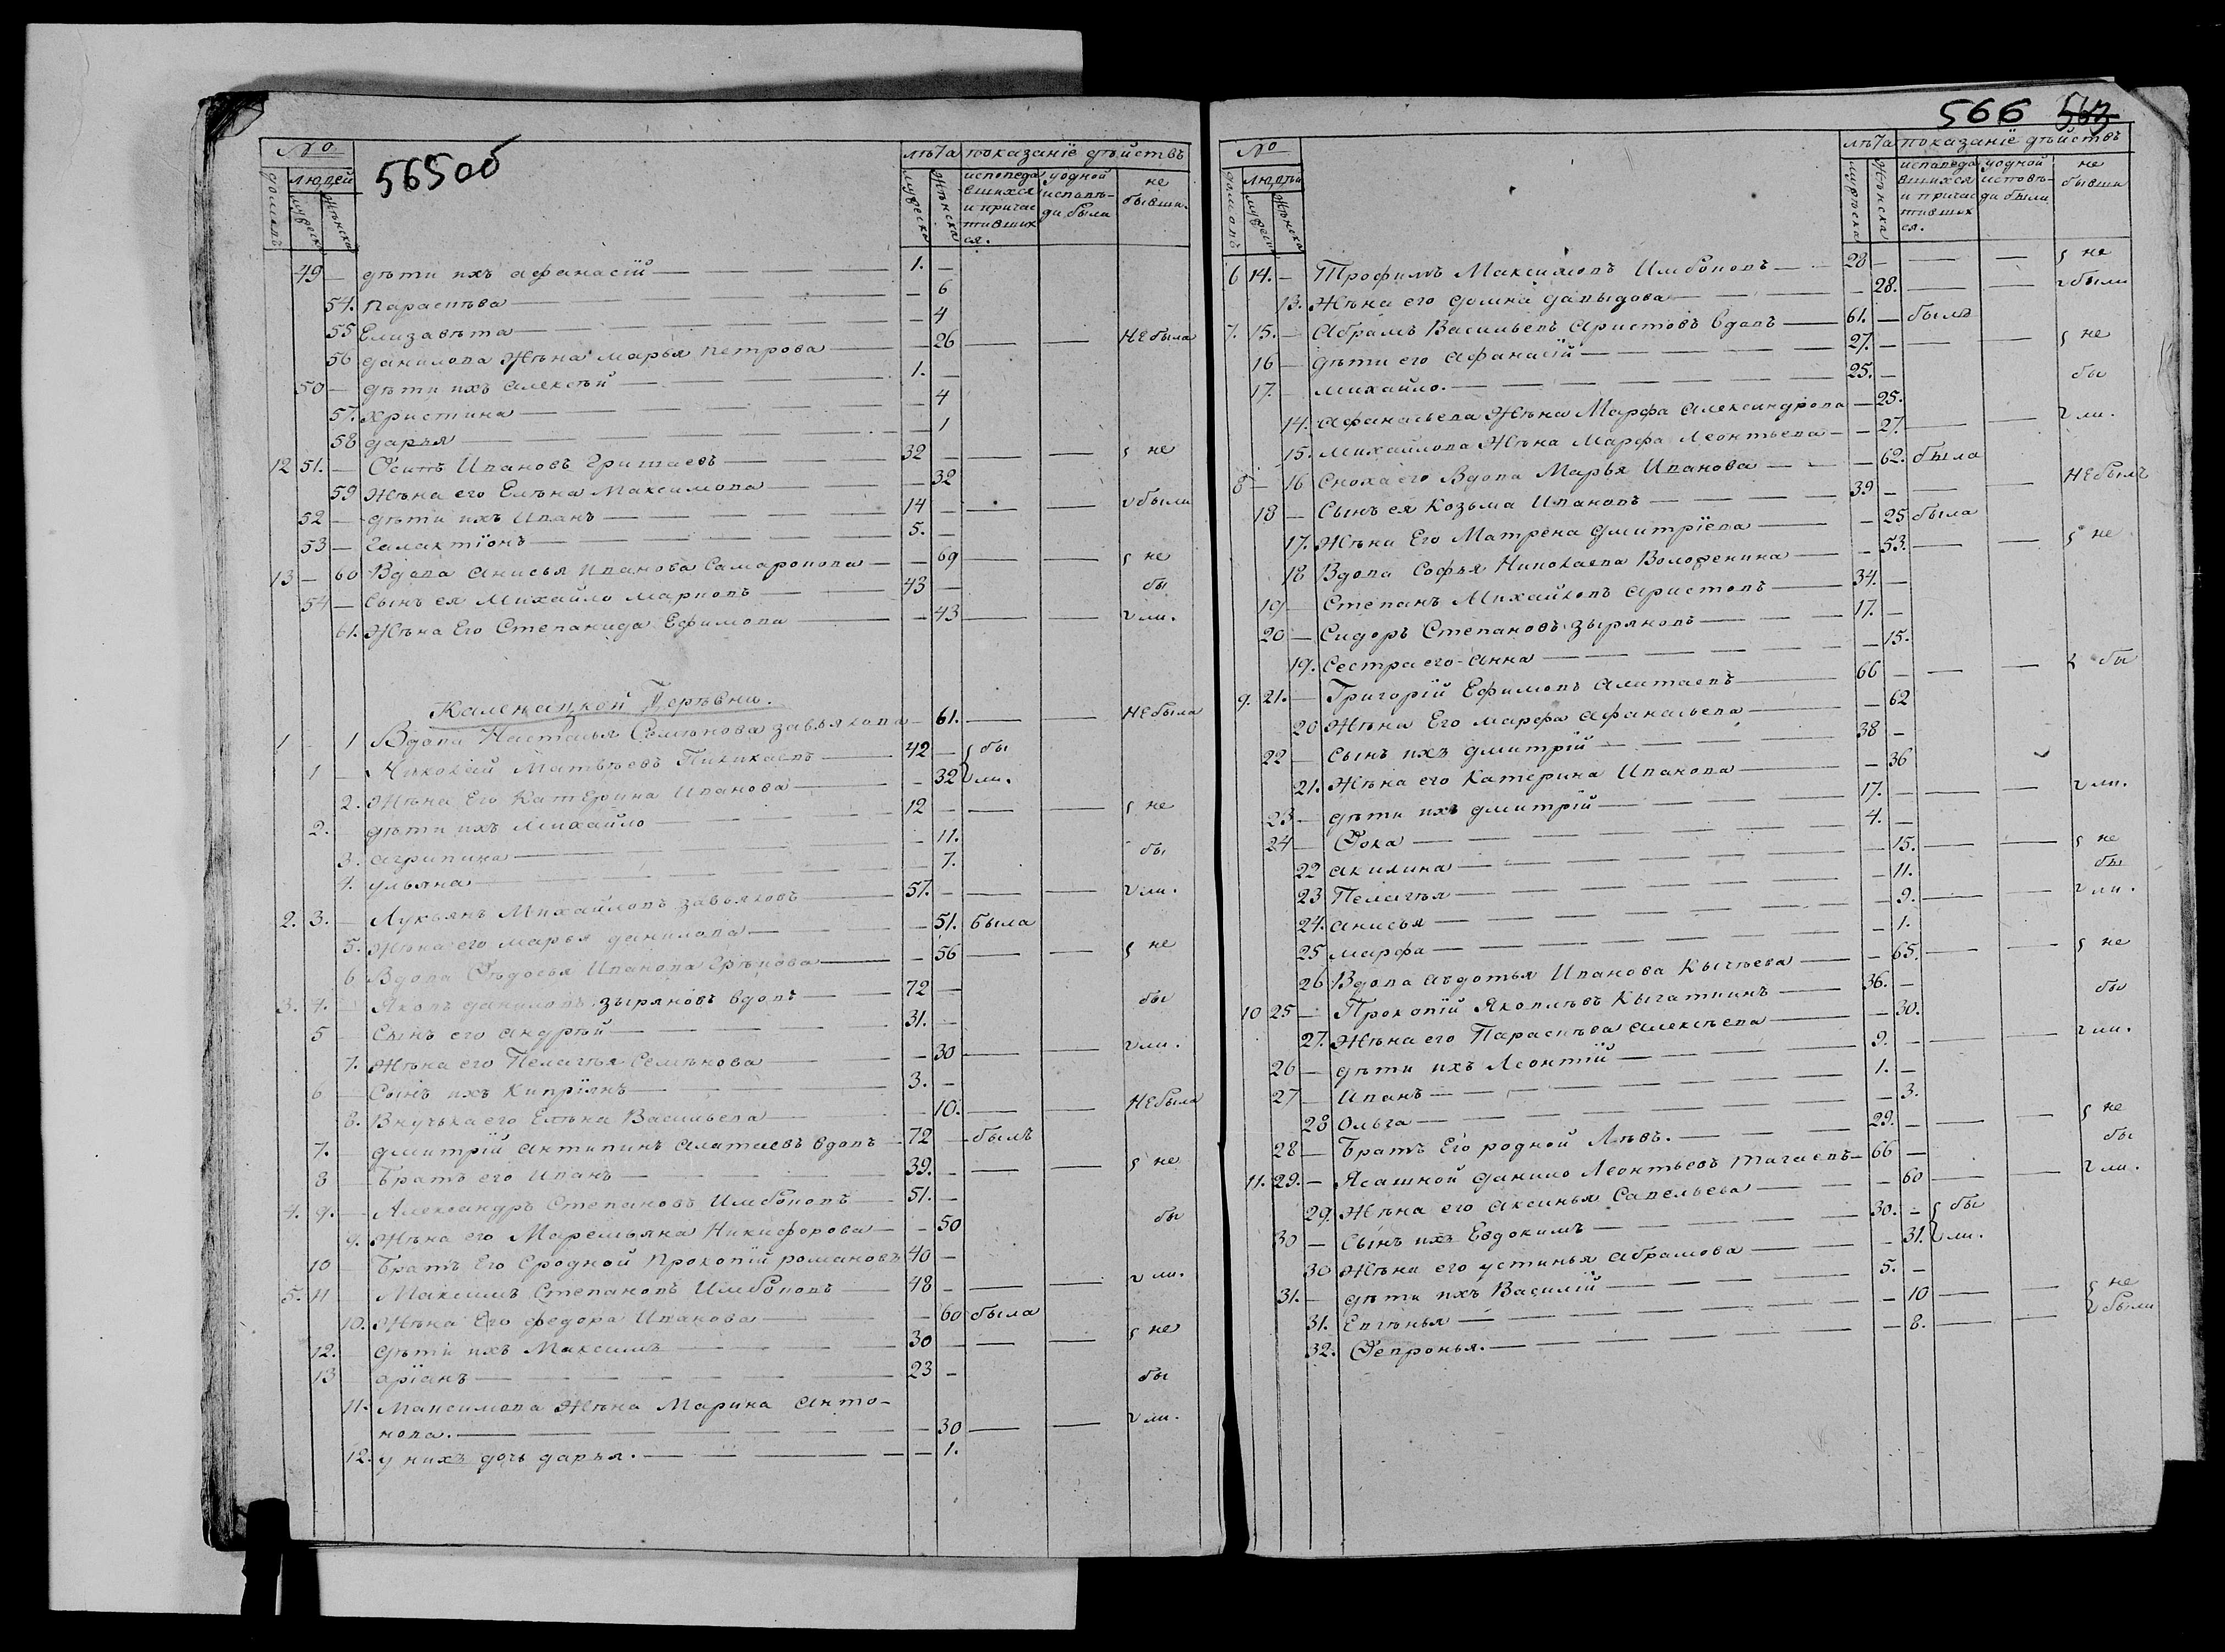 565об
№
людей
домовъ
мужеска
женска
лѣта
показанїе дѣйствъ
мужеска
женска
исповеда
вшихся
и причас
тивших
ся.
у одной
исповѣ-
ди были
не
бывши.
49 — дѣти ихъ афанасїй — 1. —
54. параскѣва — — 6
55 Елизавѣта — — 4
56 данилова Жѣна марья петрова — — 26 — — не была
50 — дѣти ихъ алексѣй — 1. —
57. христина — — 4
58 дарья — — 1
12 51. — Осипъ Ивановъ Гриtаевъ — 32 — — — не
59 Жѣна его Елѣна Максимова — — 32
52 — дѣти ихъ Иванъ — 14 — — — были
53 — Галактїонъ — 5. —
13 — 60 Вдова анисья Иванова Самаронова — — 69 — — не
54 — Сынъ ея Михайло марновъ — 43 — бы
61. Жѣна Его Степанида Ефимова — — 43 — — ли.
Деревни.
1 — 1 Вдова Настасья Семѣнова завьялова — 61. — — не была
1 — Николай Матвѣевъ — 42 — бы
2. Жѣна Его Катерина Иванова — — 32 ли.
2. — дѣти ихъ Михайло — 12 — — — не
3. агрипина — — 11.
4. ульяна — — 7. бы
2. 3. — Лукьянъ Михайловъ завьяловъ — 57. — — — ли.
5. Жѣна его марья данилова — — 51. была
6 Вдова Ѳедосья Иванова — — 56 — — не
3. 4. — Яковъ даниловъ зыряновъ вдовъ — 72 —
5 — Сынъ его андрѣй — 31. — бы
7. Жѣна его Пелагѣя Семѣнова — — 30 — — ли.
6 — Сынъ ихъ Кипрїянъ — 3. —
8. Внучька его Елѣна Васильева — — 10. — — не была
7. — дмитрїй антипинъ алатаевъ вдовъ — 72 — былъ
8 — Братъ его Иванъ — 39. — — — не
4. 9. — Александръ Степановъ Имбоновъ — 51. —
9. Жѣна его Маремьяна Никифорова — — 50 бы
10 — Братъ Его Сродной Прокопїй романовъ 40 —
5. 11 — Максимъ Степановъ Имбоновъ — 48 — — — ли.
10. Жѣна Его федора Иванова — — 60 была
12. — дѣти ихъ Максимъ — 30 — — — не
13 — арїанъ — 23 — бы
11. Максимова Жѣна Марина анто-
нова. — — 30 — — ли.
12. у нихъ дочь дарья. — — 1.
566 563
№
людѣй
домовъ
мужеск
женска
лѣта
показанїе дѣйствъ
мужеска
женска
исповеда
вшихся
и причас
тивших
ся.
у одной
исповѣ-
ди были
не
бывши
6 14. — Трофимъ Максимовъ Имбоновъ — 28 — — — не
13. Жѣна его домна давыдова — — 28. — — были
7. 15. — Абрамъ Васильевъ аристовъ вдовъ — 61. — былъ
16 — дѣти его афанасїй — 27. — — — не
17. — михайло. — 25. — бы
14. афанасьева Жѣна Марфа александрова — 25.
15. михайлова Жѣна Марфа Леонтьева — — 27. — — ли.
8 — 16 Сноха его Вдова Марья Иванова — — 62. была
18 — Сынъ ея Козьма Ивановъ — 39 — — — не былъ
17. Жѣна Его Матрена дмитрїева — — 25 была
18 Вдова Софья Николаева Волофенина — — 53. — — не
19 — Степанъ Михайловъ аристовъ — 34. —
20 — Сидоръ Степановъ зыряновъ — 17. —
19. Сестра его анна — — 15.
9. 21. — Григорїй Ефимовъ алатаевъ — 66 — — — бы
20 Жѣна Его марфа афанасьева — — 62
22 — Сынъ ихъ дмитрїй — 38 —
21. Жѣна его Катерина Иванова — — 36
23 — дѣти ихъ дмитрїй — 17. — — — ли.
24 — Ѳока — 4. —
22 акилина — — 15. — — не
23 Пелагѣя — — 11. бы
24. анисья — — 9. — — ли.
25 марфа — — 1.
26 Вдова авдотья Иванова Кычѣева — — 65. — — не
10 25 — Прокопїй Яковлѣвъ — 36. — бы
27. Жѣна его Параскѣва алексѣева — — 30.
26 — дѣти ихъ Леонтїй — 9. — — — ли.
27 — Иванъ — 1. —
28 Ольга — — 3.
28 — Братъ Его родной Лѣвъ. — 29. — — — не
11. 29. — Ясашной данило Леонтьевъ тагаевъ — 66 — бы
29. Жѣна его аксинья Савельева — — 60 — — ли.
30 — Сынъ ихъ Евдокимъ — 30. — бы
30 Жѣна его устинья абрамова — — 31. ли.
31. — дѣти ихъ Василїй — 5. —
31. Евгѣнья — — 10 — — не
32. Ѳевронья. — — 8. — — были